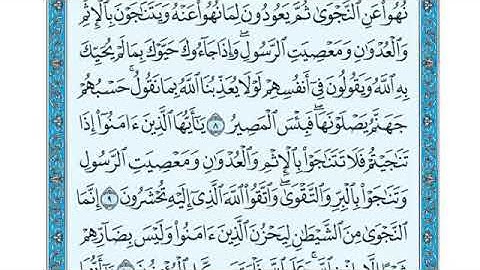 نُهُوا۟ عَنِ ٱلنَّجْوَىٰ ثُمَّ يَعُودُونَ لِمَا نُهُوا۟ عَنْهُ وَيَتَنَٰجَوْنَ بِٱلْإِثْمِ
وَٱلْعُدْوَٰنِ وَمَعْصِيَتِ ٱلرَّسُولِۖ وَإِذَا جَآءُوكَ حَيَّوْكَ بِمَا لَمْ يُحَيِّكَ
بِهِ ٱللَّهُ وَيَقُولُونَ فِىٓ أَنفُسِهِمْ لَوْلَا يُعَذِّبُنَا ٱللَّهُ بِمَا نَقُولُۚ حَسْبُهُمْ
جَهَنَّمُ يَصْلَوْنَهَاۖ فَبِئْسَ ٱلْمَصِيرُ ٨ يَٰٓأَيُّهَا ٱلَّذِينَ ءَامَنُوٓا۟ إِذَا
تَنَٰجَيْتُمْ فَلَا تَتَنَٰجَوْا۟ بِٱلْإِثْمِ وَٱلْعُدْوَٰنِ وَمَعْصِيَتِ ٱلرَّسُولِ
وَتَنَٰجَوْا۟ بِٱلْبِرِّ وَٱلتَّقْوَىٰۖ وَٱتَّقُوا۟ ٱللَّهَ ٱلَّذِىٓ إِلَيْهِ تُحْشَرُونَ ٩ إِنَّمَا
ٱلنَّجْوَىٰ مِنَ ٱلشَّيْطَٰنِ لِيَحْزُنَ ٱلَّذِينَ ءَامَنُوا۟ وَلَيْسَ بِضَآرِّهِمْ